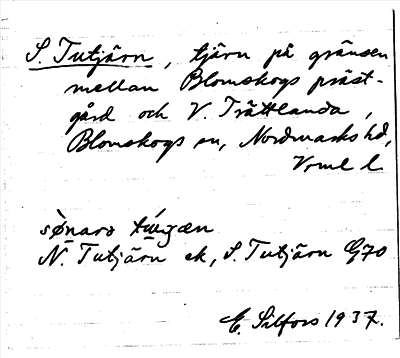 S. Tutjärn, tjärn på gränsen
mellan Blomskogs präst-
gård och V. Trättlanda,
Blomskogs sn, Nordmarks hd,
Vrml l
N. Tutjärn ek, S. Tutjärn G70
E. Silfors 1937.